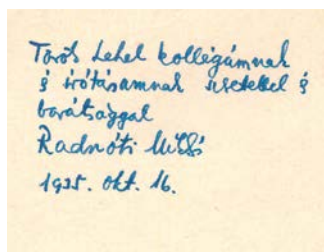 Török Lehel kollégámnak
s írótársamnak szeretettel s
barátsággal
Radnóti Miklós
1935. okt. 16.